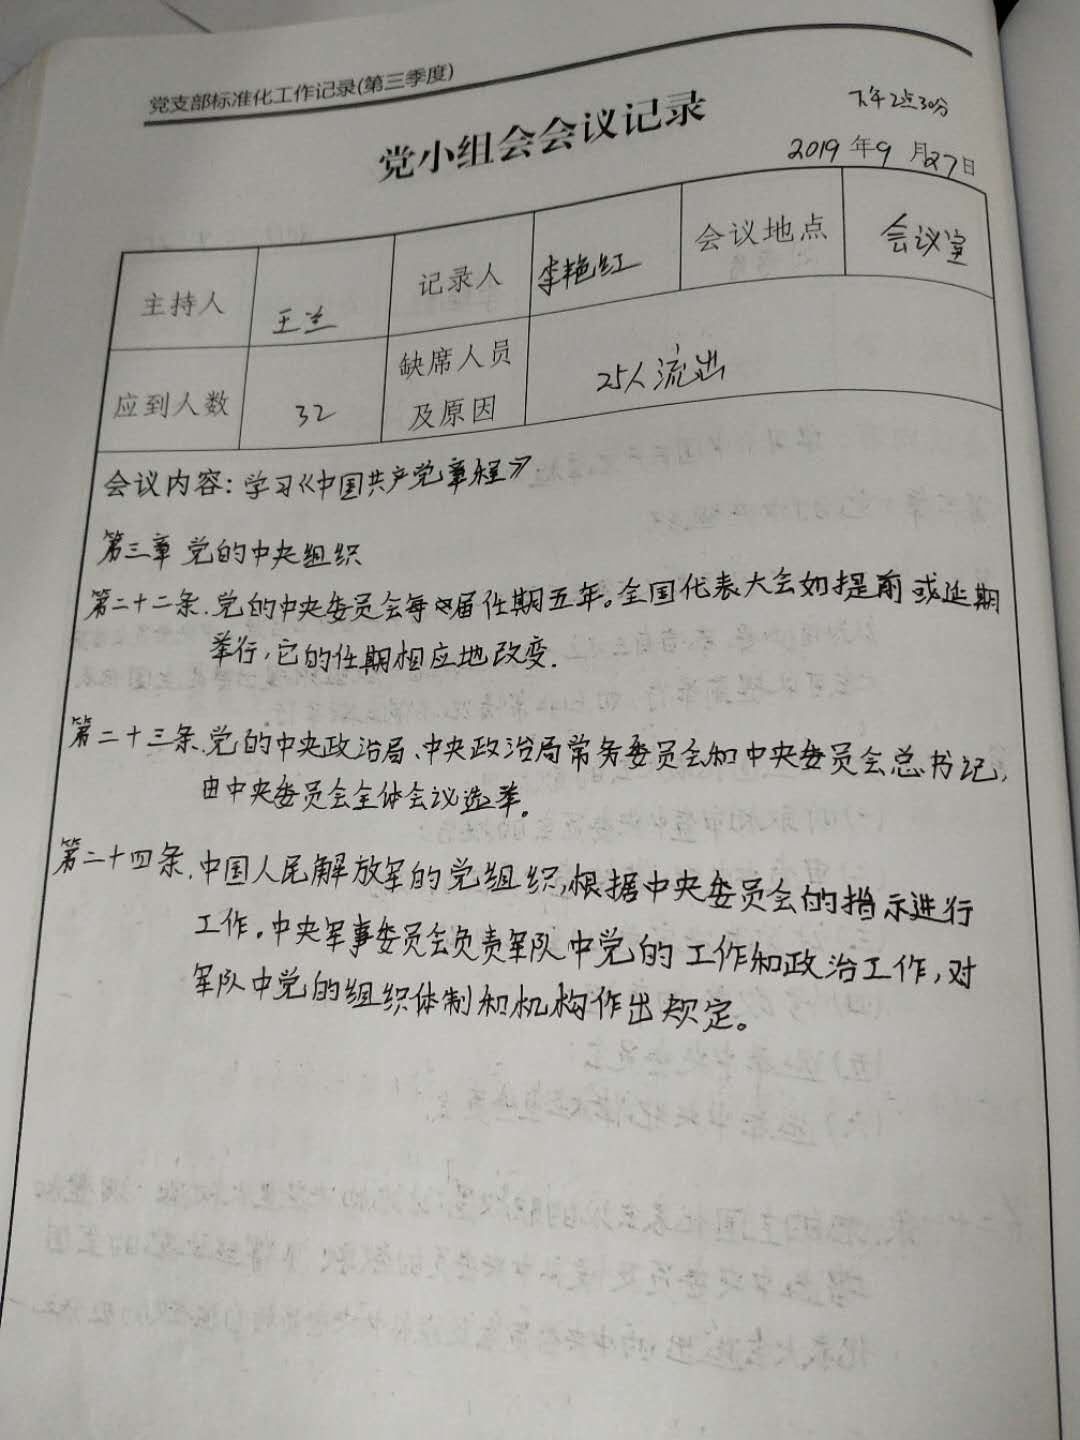 党支部标准化工作记录(第三季度)
党小组会会议记录
下午2点30分
2019年9月27日
主持人 王兰 记录人 李艳红 会议地点 会议室
应到人数 32 缺席人员及原因 25人流出
会议内容：学习《中国共产党章程》
第三章 党的中央组织
第二十二条.党的中央委员会每届任期五年。全国代表大会如提前或延期
举行,它的任期相应地改变.
第二十三条.党的中央政治局、中央政治局常务委员会和中央委员会总书记,
由中央委员会全体会议选举。
第二十四条.中国人民解放军的党组织,根据中央委员会的指示进行
工作。中央军事委员会负责军队中党的工作和政治工作,对
军队中党的组织体制和机构作出规定。